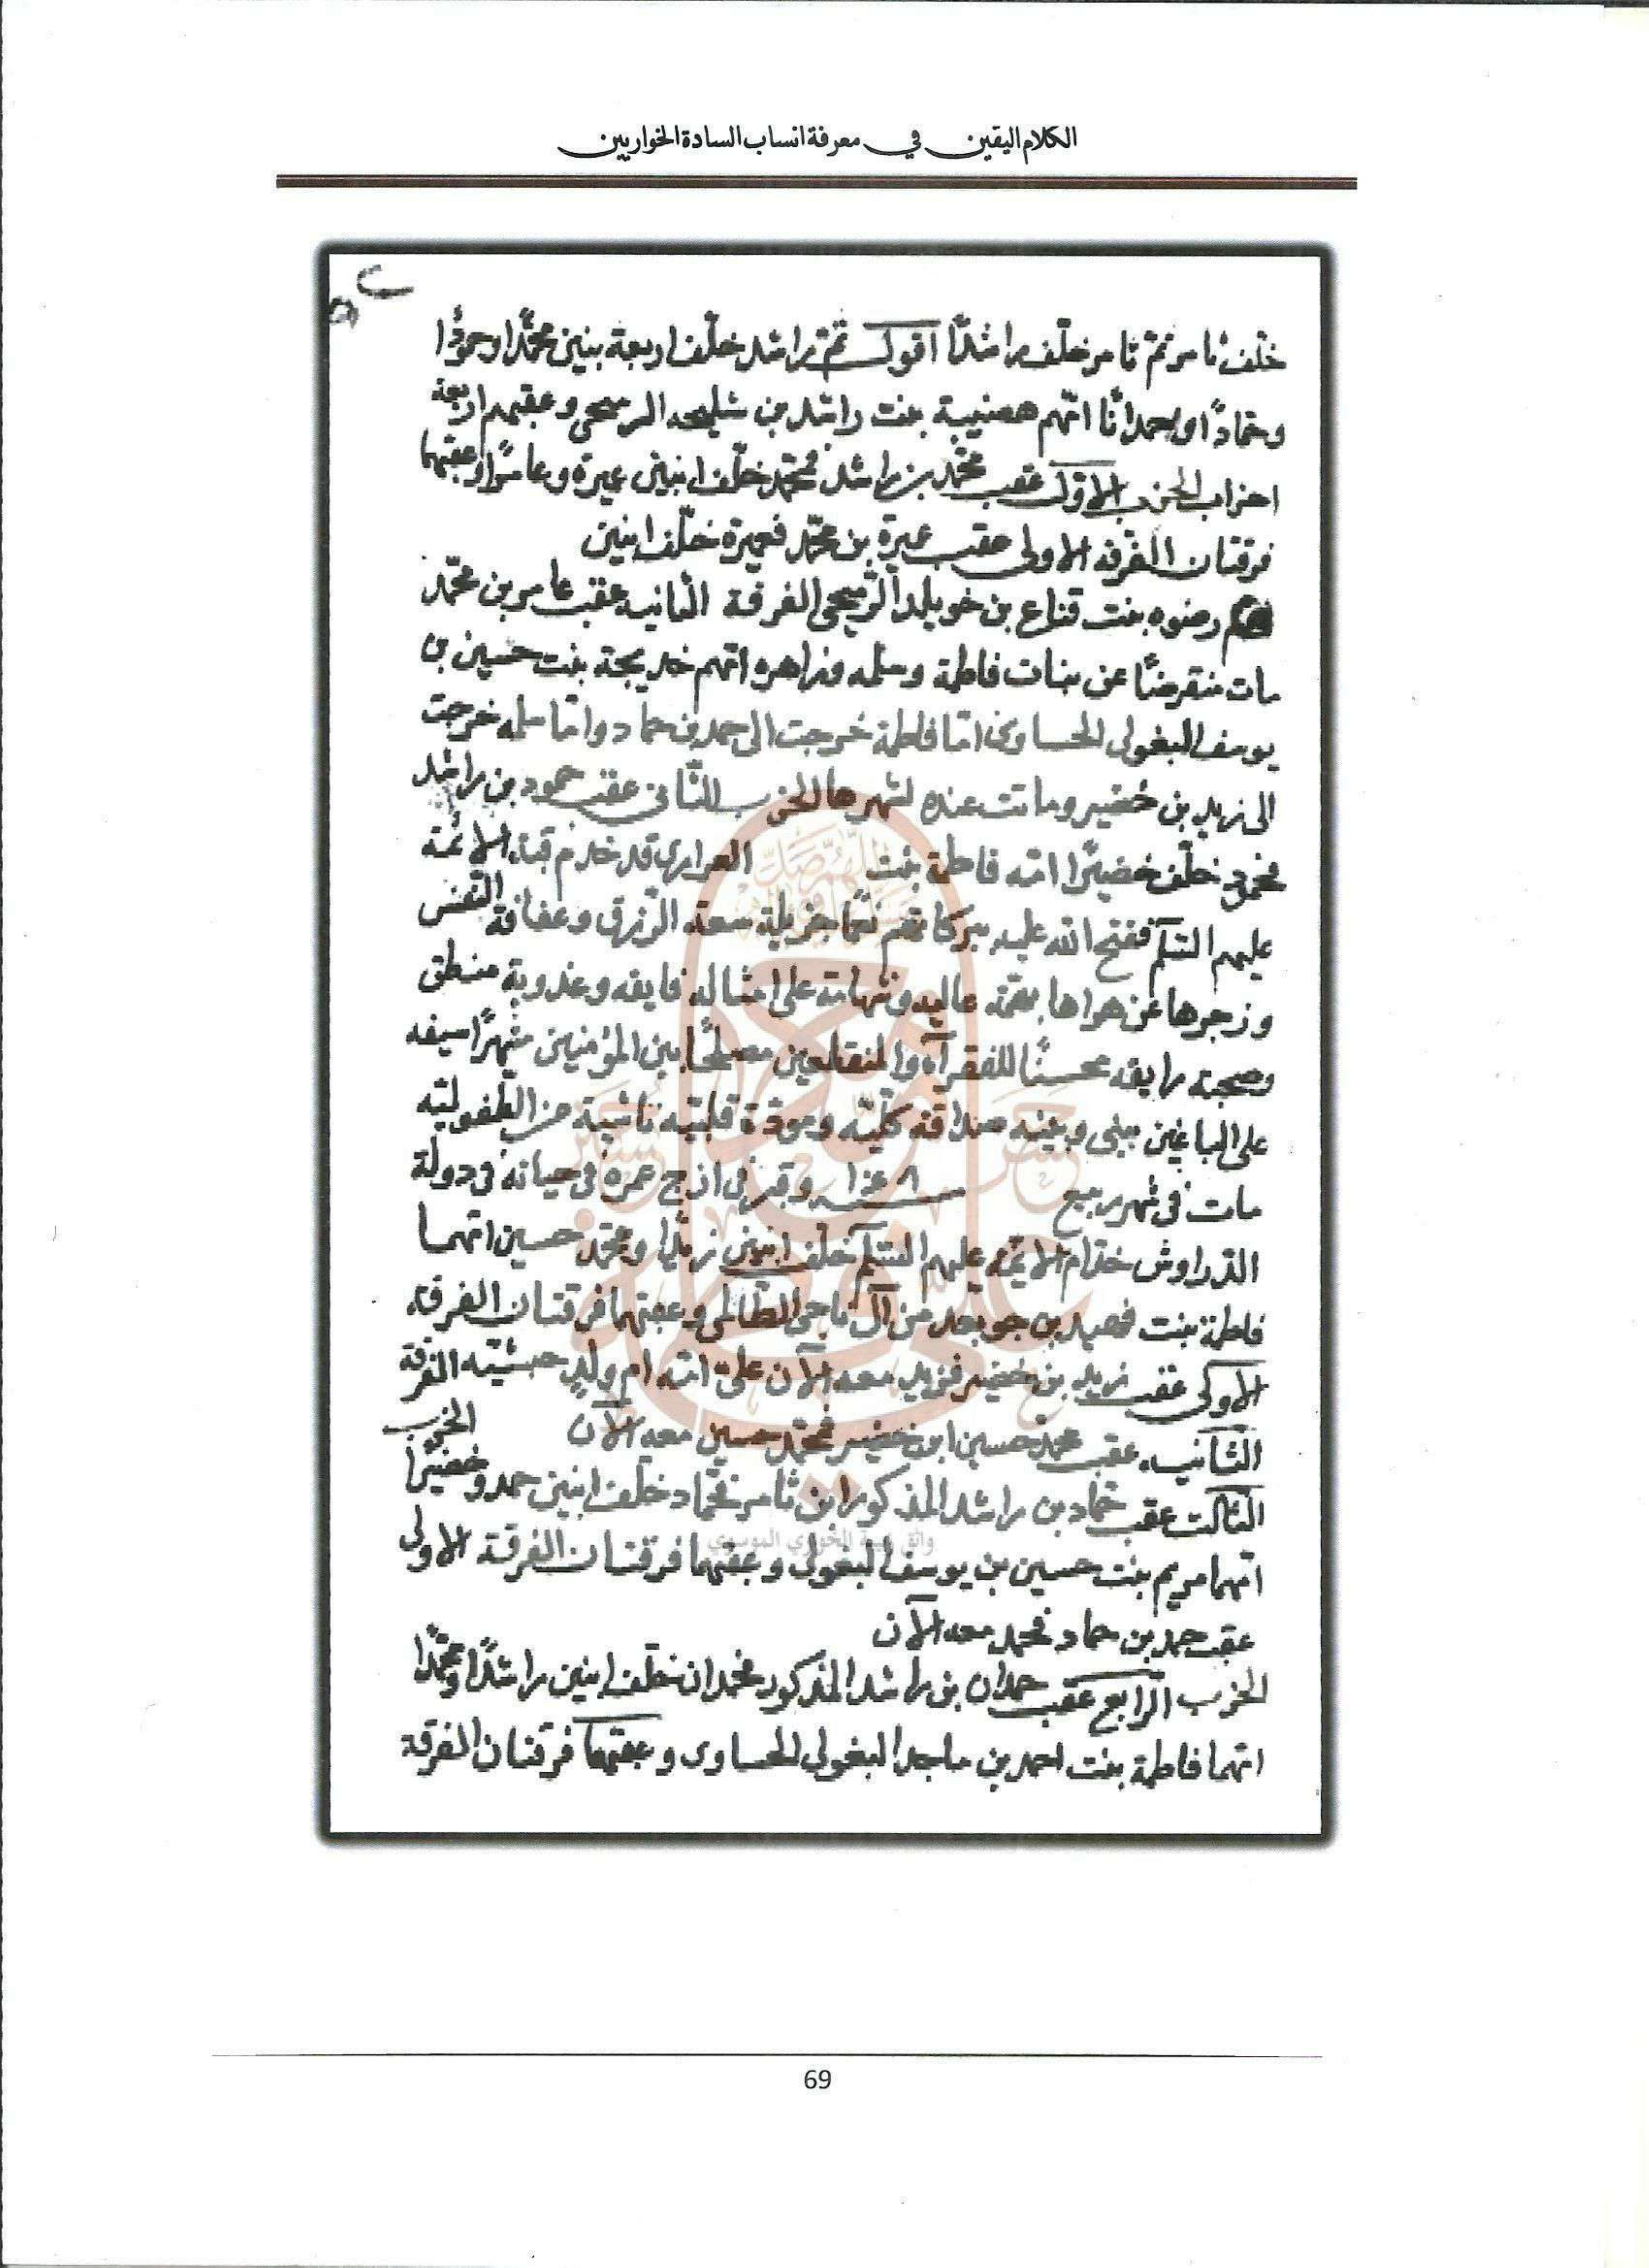 الكلام اليقين في معرفة انساب السادة الخواريين
خلف ثامر ثم ثامر خلف راشدًا اقول ثم راشد خلف اربعة بنين محمدًا وحمودًا
وحمادًا وحمدانًا امهم هضيبة بنت راشد بن الرميحي وعقبهم اربعة
احزاب الحزب الاول عقب محمد بن راشد فمحمد خلف ابنين عيرة وعامرًا وعقبهما
فرقتان الفرقة الاولى عقب عيرة بن محمد فعيرة خلف ابنين
رضوه بنت قناع بن خويلد الرميحي الفرقة الثانيه عقب عامر بن محمد
مات منقرضًا عن بنات فاطمة وسلمه وزاهره امهم خديجة بنت حسين بن
يوسف البغولي الحساوي اما فاطمة خرجت الى حمد بن حماد واما سلمه خرجت
الى زيد بن خضير وماتت عنده لشهرها الحزب الثاني عقب حمود بن راشد
فحمود خلف خضيرًا امه فاطمة بنت العرارى قد خدم قبة الائمة
عليهم السلم ففتح الله عليه ببركاتهم نعمًا جزيلة سعة الرزق وعفافة النفس
وزجرها عن هواها بهمة عاليه وشهامة على امثاله فايقه وعذوبة منطق
وصحبة رايقه محسنًا للفقرآء والمنقطعين مصلحًا بين المؤمنين مشهرًا سيفه
على الباغين بيني وبينه صداقة كليه ومودة قلبيه ناشية من الطفوليه
مات في شهر ربيع وقبر في ازج عمره في حياته في دولة
الدراوش خدام الائمة عليهم السلم خلف ابنين زيدًا ومحمد حسين امهما
فاطمة بنت فهيد بن جويعد من آل ناجى الطالبي وعقبهما فرقتان الفرقة
الاولى عقب زيد بن خضير فزيد معه الآن على امه ام ولد حبشيه الفرقة
الثانيه عقب محمد حسين ابن خضير فمحمد حسين معه الآن الحزب
الثالث عقب حماد بن راشد المذكور ابن ثامر فحماد خلف ابنين حمد وخضيرًا
امهما مريم بنت حسين بن يوسف البغولي وعقبهما فرقتان الفرقة الاولى
عقب حمد بن حماد فحمد معه الآن
الحزب الرابع عقب حمدان بن راشد المذكور فحمدان خلف ابنين راشدًا ومحمدًا
امهما فاطمة بنت احمد بن ماجد البغولي الحساوى وعقبهما فرقتان الفرقة
واثق زبيبة الخوري الموسوي
69